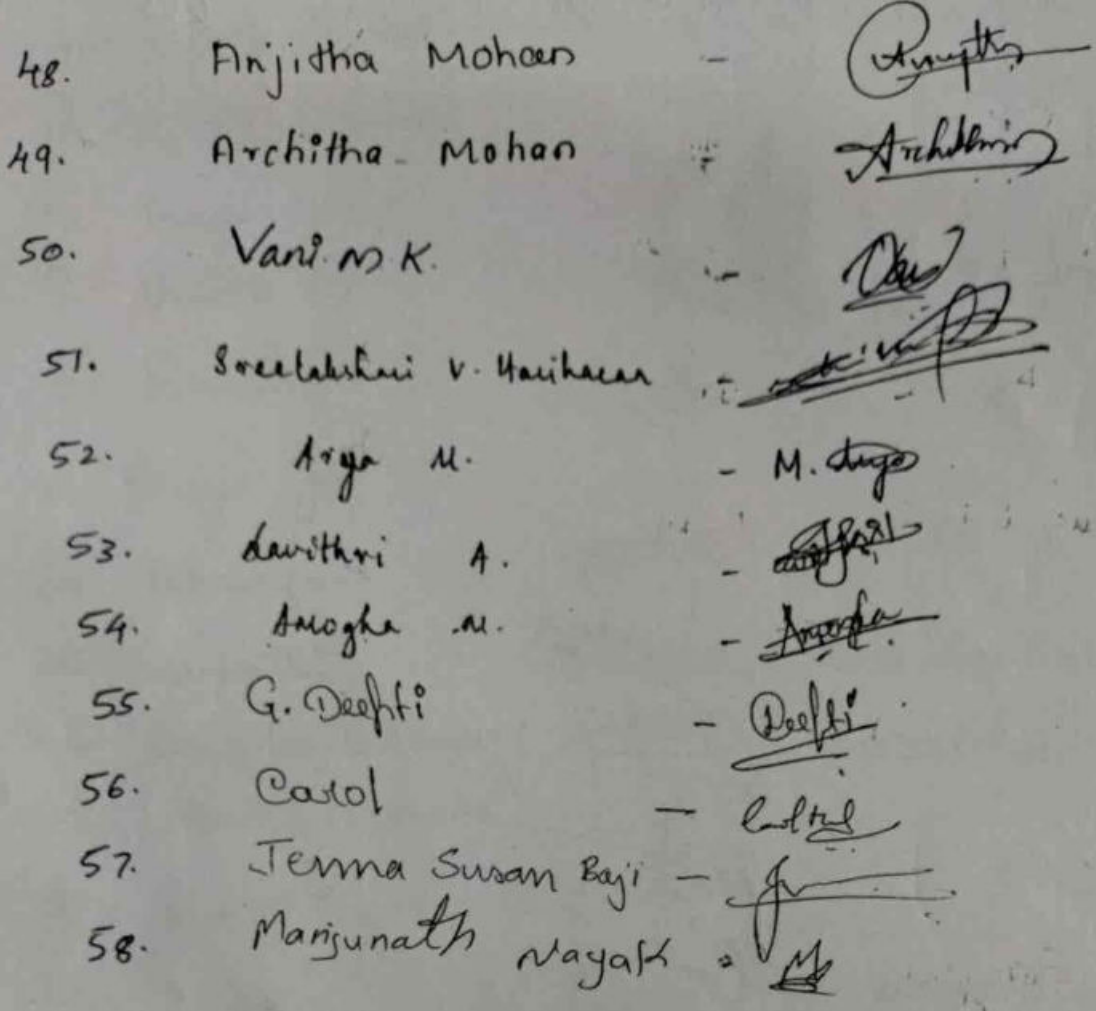 48. Anjitha Mohan -
49. Architha Mohan -
50. Vani. M K. -
51. Sreelakshmi V. Hariharan -
52. Arya M. - M. Arya
53. Savithri A. -
54. Amogha M. - Amogha
55. G. Deepti - Deepti
56. Carol -
57. Jenna Susan Baji -
58. Manjunath Nayak -